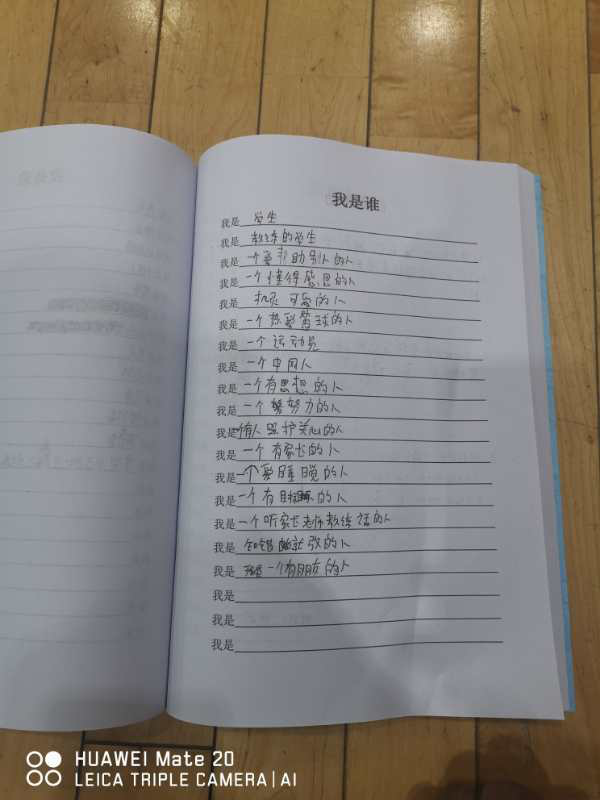 我是谁
我是 学生
我是 教练的学生
我是 一个爱帮助别人的人
我是 一个懂得感恩的人
我是 机灵可爱的人
我是 一个热爱篮球的人
我是 一个运动员
我是 一个中国人
我是 一个有思想的人
我是 一个努力的人
我是 有人照护关心的人
我是 一个有家长的人
我是 一个爱睡觉的人
我是 一个有目标的人
我是 一个听家长老师教练话的人
我是 知错就改的人
我是 一个有朋友的人
我是
我是
我是
HUAWEI Mate 20
LEICA TRIPLE CAMERA | AI